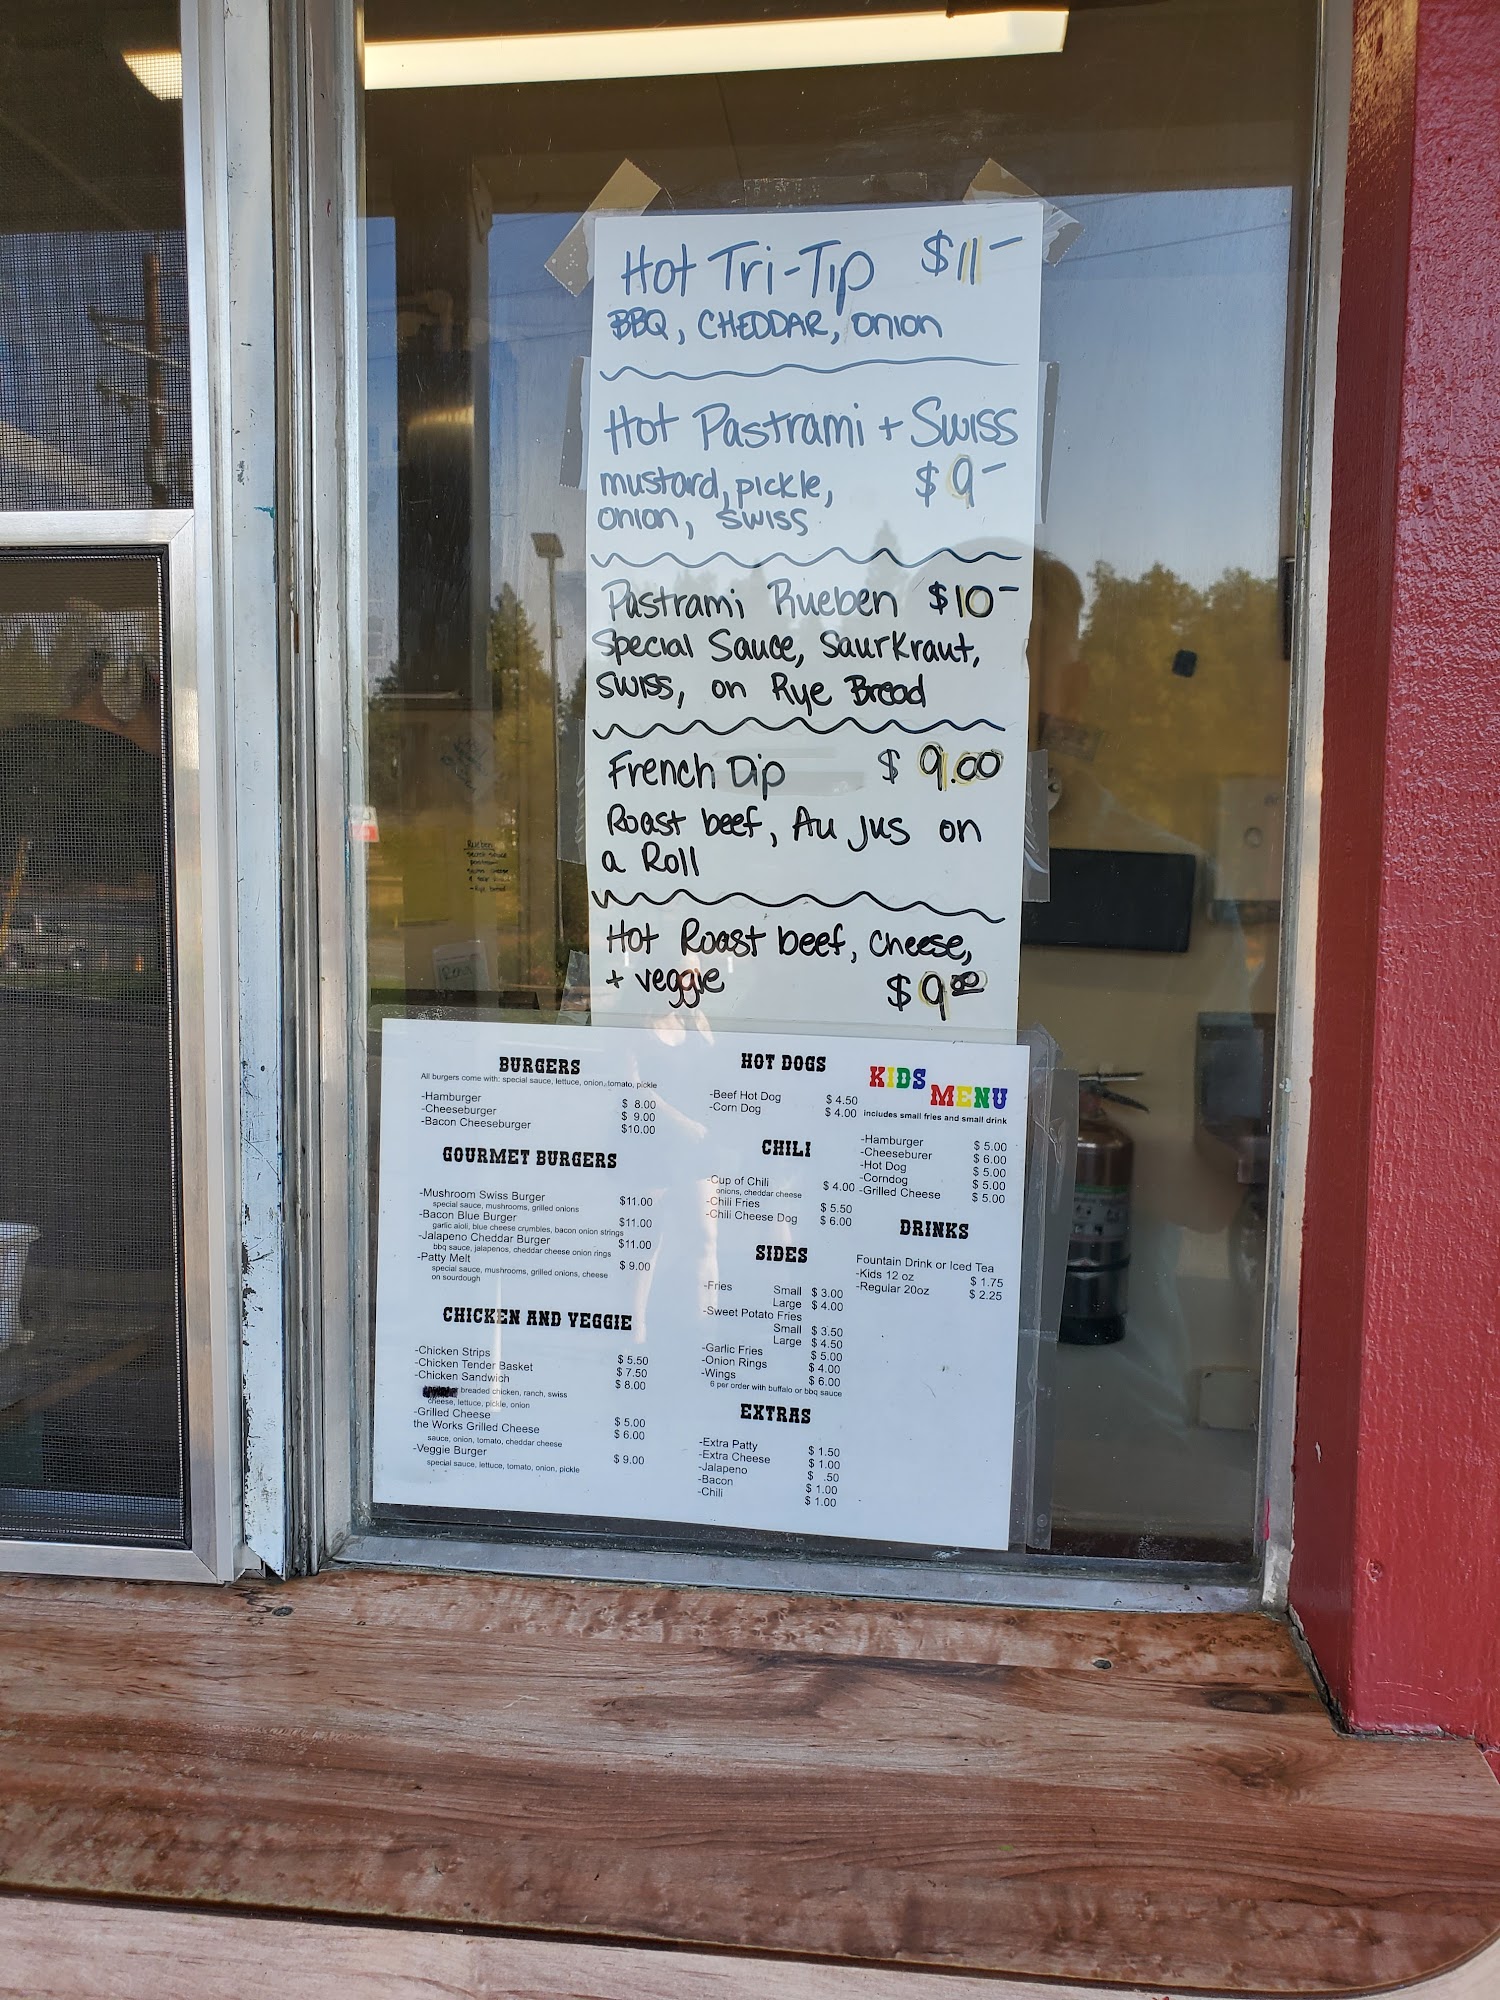 Hot Tri-Tip $11-
BBQ, CHEDDAR, onion
Hot Pastrami + Swiss
mustard, pickle, $9-
onion, swiss
Pastrami Rueben $10-
Special Sauce, SaurKraut,
swiss, on Rye Bread
French Dip $9.00
Roast beef, Au jus on
a Roll
Hot Roast beef, cheese,
+ veggie $9.00
Rueben
BURGERS
All burgers come with: special sauce, lettuce, onion, tomato, pickle
-Hamburger $ 8.00
-Cheeseburger $ 9.00
-Bacon Cheeseburger $10.00
GOURMET BURGERS
-Mushroom Swiss Burger $11.00
special sauce, mushrooms, grilled onions
-Bacon Blue Burger $11.00
garlic aioli, blue cheese crumbles, bacon onion strings
-Jalapeno Cheddar Burger $11.00
bbq sauce, jalapenos, cheddar cheese onion rings
-Patty Melt $ 9.00
special sauce, mushrooms, grilled onions, cheese
on sourdough
CHICKEN AND VEGGIE
-Chicken Strips $ 5.50
-Chicken Tender Basket $ 7.50
-Chicken Sandwich $ 8.00
breaded chicken, ranch, swiss
cheese, lettuce, pickle, onion
-Grilled Cheese $ 5.00
the Works Grilled Cheese $ 6.00
sauce, onion, tomato, cheddar cheese
-Veggie Burger $ 9.00
special sauce, lettuce, tomato, onion, pickle
HOT DOGS
-Beef Hot Dog $ 4.50
-Corn Dog $ 4.00
CHILI
-Cup of Chili $ 4.00
onions, cheddar cheese
-Chili Fries $ 5.50
-Chili Cheese Dog $ 6.00
SIDES
-Fries Small $ 3.00
Large $ 4.00
-Sweet Potato Fries
Small $ 3.50
Large $ 4.50
-Garlic Fries $ 5.00
-Onion Rings $ 4.00
-Wings $ 6.00
6 per order with buffalo or bbq sauce
EXTRAS
-Extra Patty $ 1.50
-Extra Cheese $ 1.00
-Jalapeno $ .50
-Bacon $ 1.00
-Chili $ 1.00
KIDS MENU
includes small fries and small drink
-Hamburger $ 5.00
-Cheeseburer $ 6.00
-Hot Dog $ 5.00
-Corndog $ 5.00
-Grilled Cheese $ 5.00
DRINKS
Fountain Drink or Iced Tea
-Kids 12 oz $ 1.75
-Regular 20oz $ 2.25